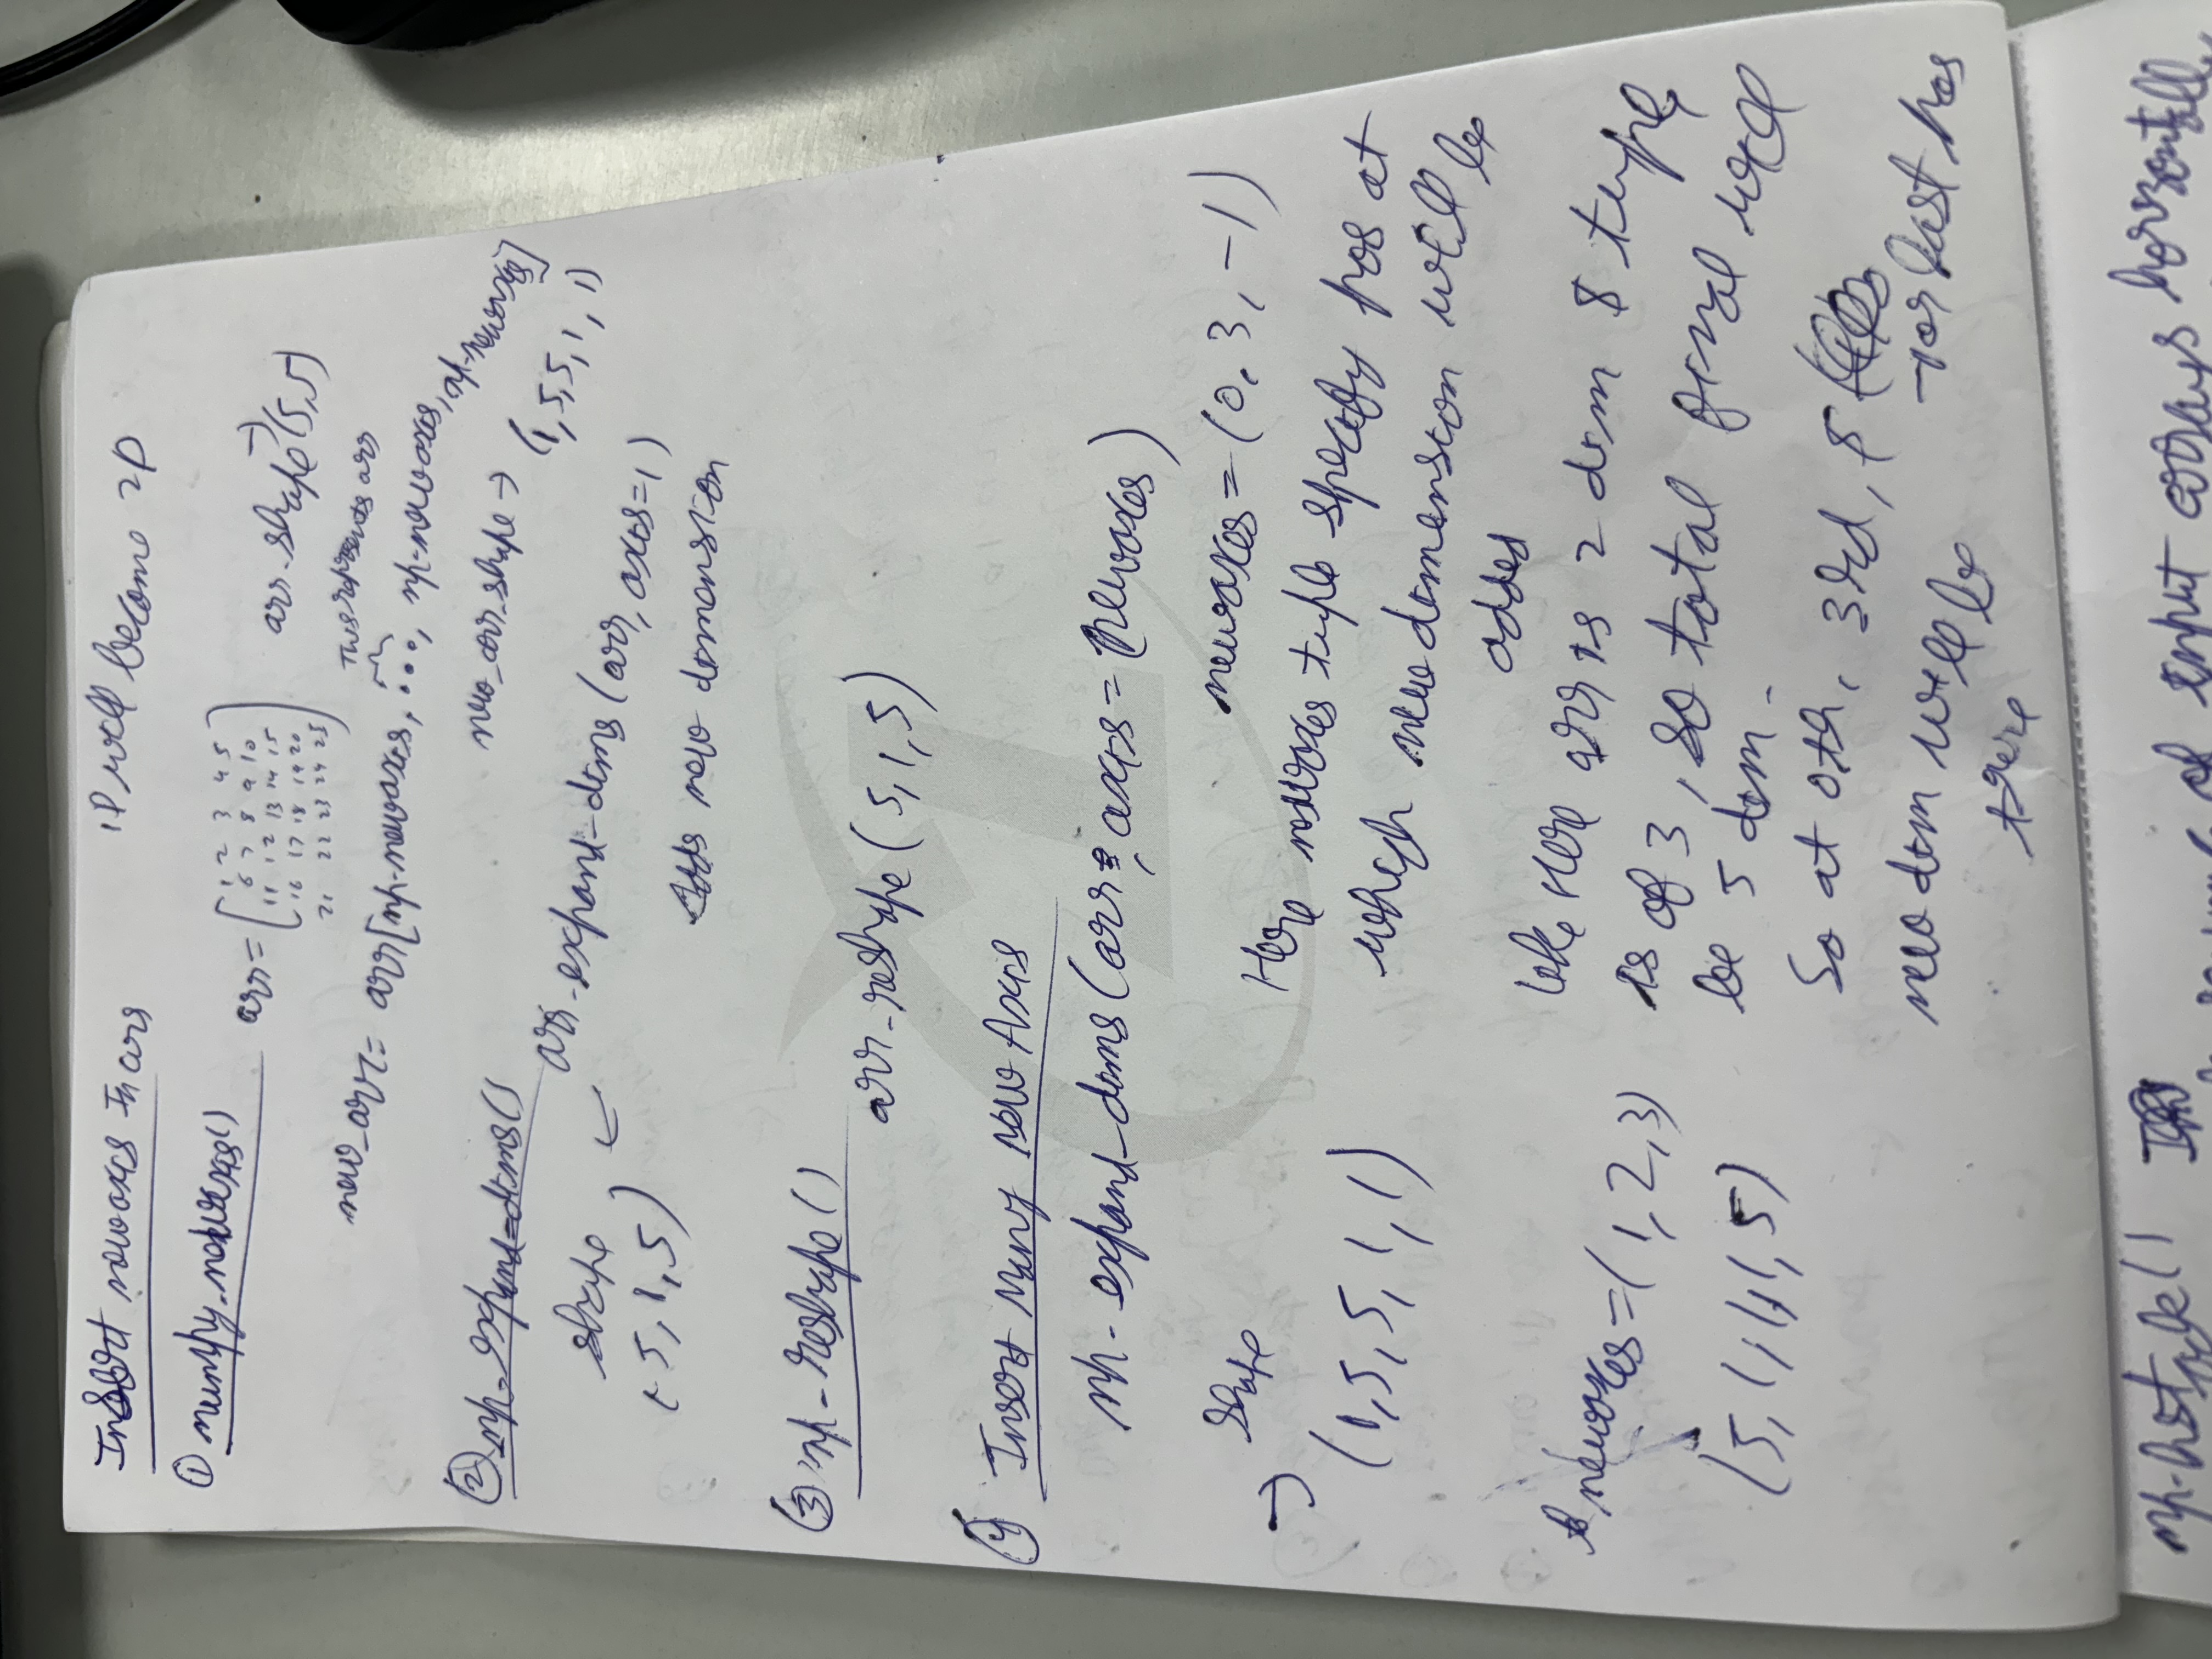 Insert newaxis In arr
1D will become 2D
① numpy.newaxis()
arr = [ 1 2 3 4 5
6 7 8 9 10
11 12 13 14 15
16 17 18 19 20
21 22 23 24 25 ]
arr.shape → (5,5)
This represents arr
new_arr = arr[np.newaxis, ..., np.newaxis, np.newaxis]
new_arr.shape → (1,5,5,1,1)
② np.expand_dims()
arr.expand_dims(arr, axis=1)
shape ←
(5,1,5)
Adds new dimension
③ np.reshape()
arr.reshape(5,1,5)
④ Insert Many New Axis
np.expand_dims(arr, axis = newaxes)
newaxes = (0, 3, -1)
shape
→ (1,5,5,1,1)
Here newaxes tuple specify pos at
which new dimension will be
added
like Here arr is 2 dim & tuple
is of 3, so total final will
be 5 dim.
So at 0th, 3rd, &
-1 or last pos
new dim will be
there
newaxes = (1,2,3)
(5,1,1,1,5)
np.hstack()
of input arrays horizontally